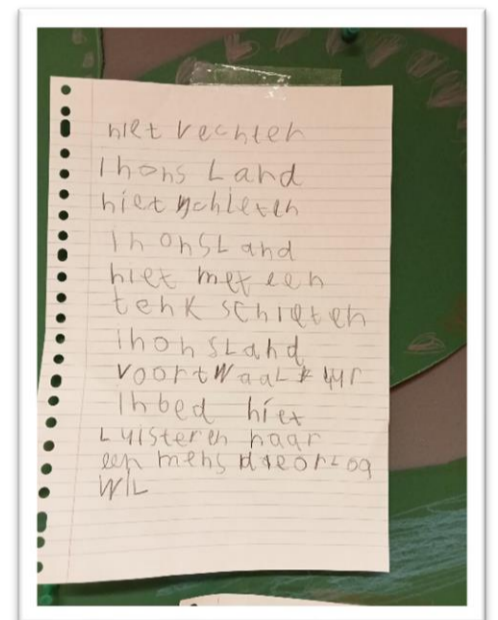 niet vechten
in ons Land
niet schieten
in ons Land
niet met een
tenk schieten
in ons Land
voor twaaLf uur
in bed niet
Luisteren naar
een mens die orLog
wiL